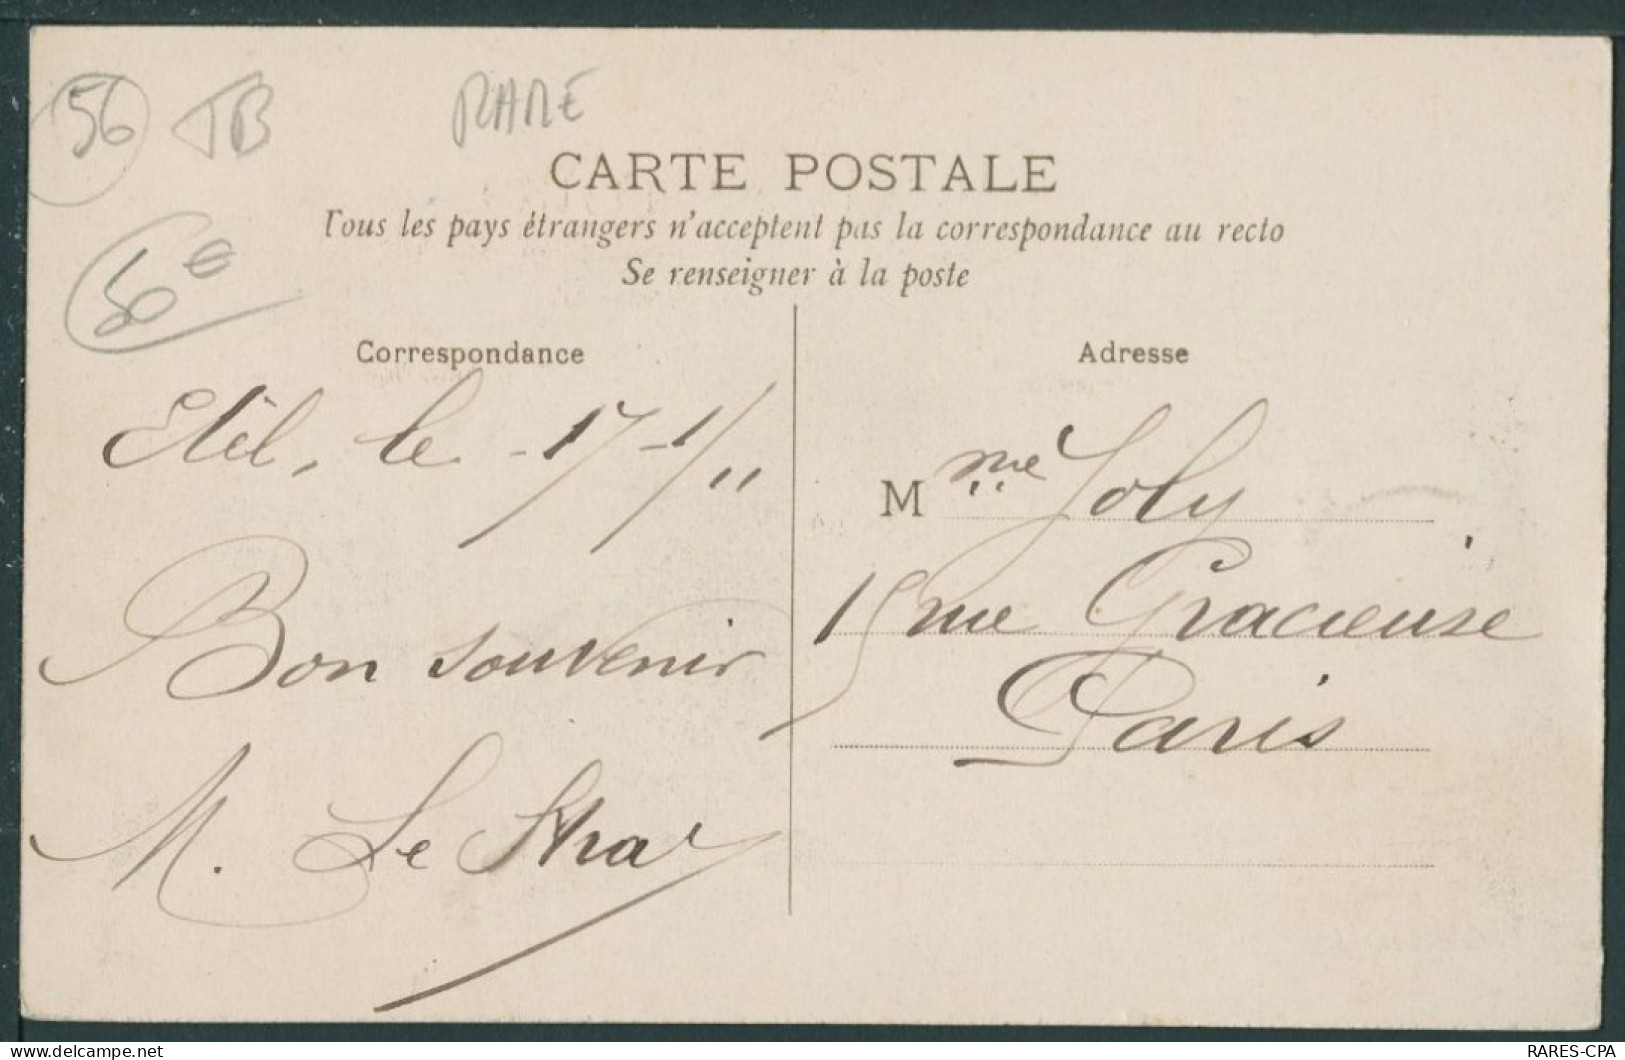 56 TB RARE
CARTE POSTALE
Tous les pays étrangers n'acceptent pas la correspondance au recto
Se renseigner à la poste
50€
Correspondance
Etel, le -17-1/11
Bon souvenir
M. Le
Adresse
Mme Joly
15 rue Gracieuse
Paris
RARES-CPA